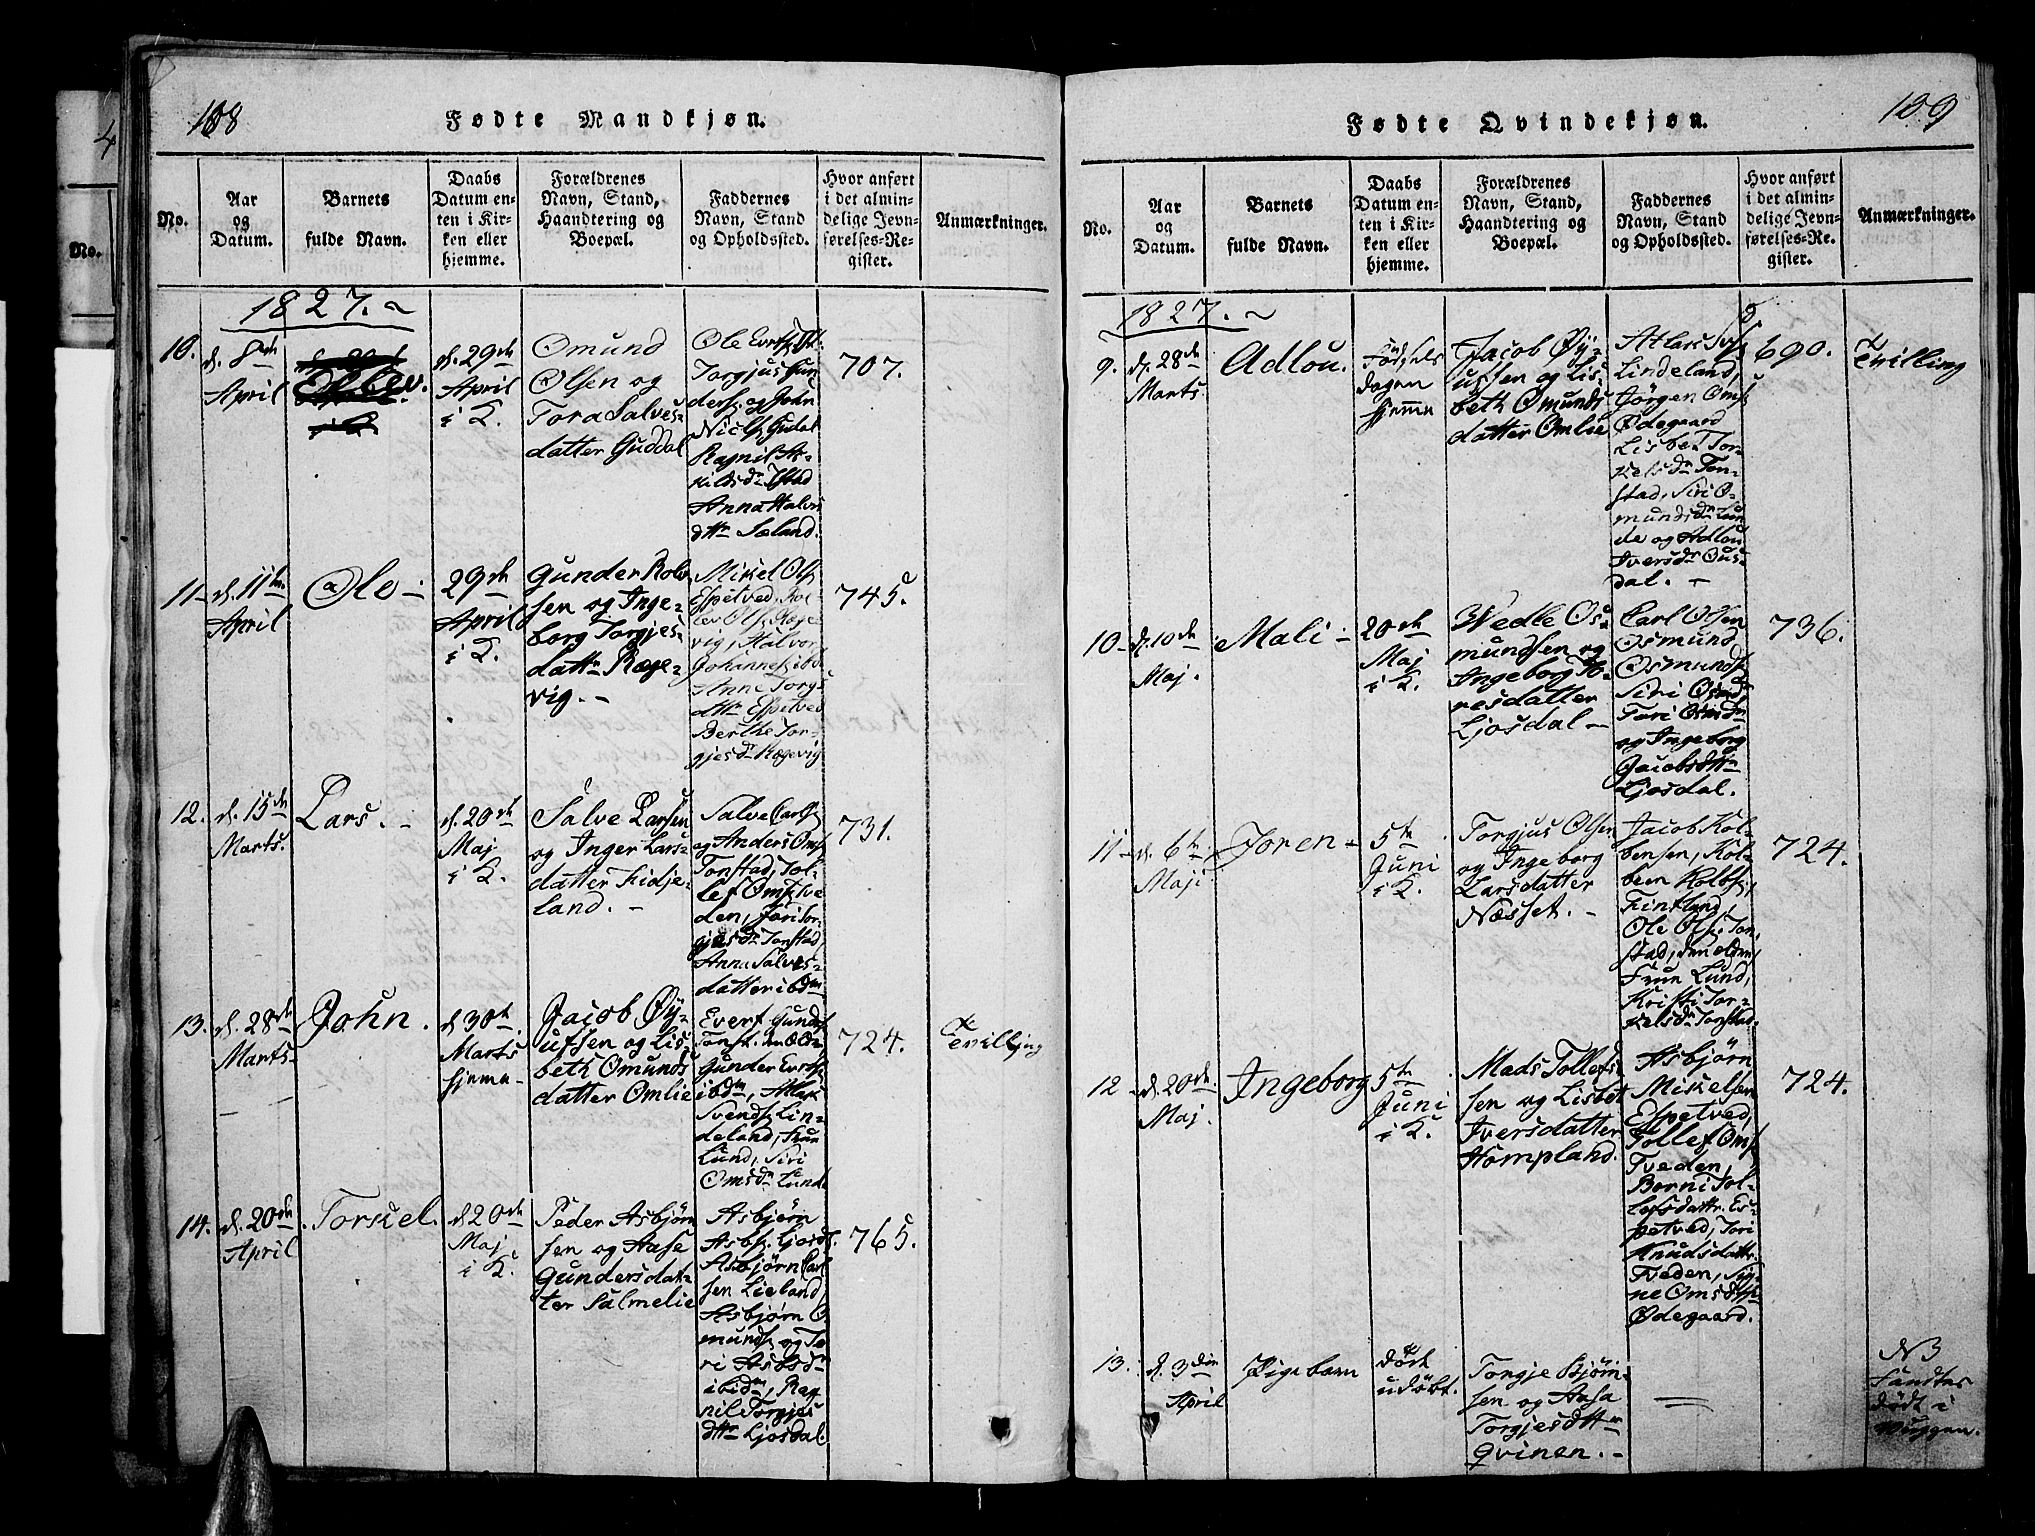 108
Fødte Mandkjøn.
No.
Aar
og
Datum.
Barnets
fulde Navn.
Daabs
Datum en-
ten i Kir-
ken eller
hjemme.
Forældrenes
Navn, Stand,
Haandtering og
Boepæl.
Faddernes
Navn, Stand
og Opholdssted.
Hvor anført
i det almin-
delige Jevn-
førelses-Re-
gister.
Anmærkninger.
1827.
10.
d. 8de
April
d. 29de
April
i K.
Omund
Olsen og
Tora Salves-
datter Guddal
Torgjus Gun
ders. og John
Niels. Gudal
Ragnil As-
kilds dr.
Anna Halvs
dttr Sæland.
707.
11-
d. 11te
April
Ole -
29de
April
i K.
Gunder Rolv
sen og Inge-
borg Torgjes-
datt Ræge-
vig. -
Mikel Ols
Espetved,
lev Ols. Ræge
vig, Halvor
Johannes. ibd
Anne Torgs
dttr Espetved
Berthe Tor-
gjesdr Rægevig
745.
12.
d. 15de
Marts.
Lars. -
d. 20de
Maj
i K.
Salve Larsen
og Inger Lars-
datter Fidje-
land. -
Salve Carls
og Anders Oms
Tonstad, Tol-
lef Oms. Tve
den, Tor-
gjesdr Tonstad
Anna Salves-
datter ibdm
731.
13.
d. 28de
Marts.
John.
d 30te
Marts
hjeme-
Jacob Øy-
ufsen og Lis-
beth Omunds
datter Omlie
Evert Gunds
Tonst. den Æld
Gunder Everts
ibdm, Atlak
Svends. Lin-
deland, Frun
Lund, Siri
Omsdr Lunde
724.
Tvilling
14.
d. 20de
April
Torkel.
d 20de
Maj
i K.
Peder Asbjørn
sen og Aase
Gundersdat-
ter Salmelie
Asbjørn
Asbs. Ljosd.
Asbjørn Carl
sen Lieland,
Asbjørn O
munds. og To
ri Asbsdr
ibidm, Rag
nil Torgjes
dttr Ljosdal
765.
109
Fødte Qvindekjøn.
No.
Aar
og
Datum.
Barnets
fulde Navn.
Daabs
Datum en-
ten i Kir-
ken eller
hjemme.
Forældrenes
Navn, Stand,
Haandtering og
Boepæl.
Faddernes
Navn, Stand
og Opholdssted.
Hvor anført
i det almin-
delige Jevn-
førelses-Re-
gister.
Anmærkninger.
1827.
9.
d. 28de
Marts.
Adlou.
Fødsels
dagen
hjemme
Jacob Øy-
ufsen og Lis-
beth Omunds
datter Omlie
Atlak
Lindeland,
Jørgen Oms
Ødegaard
Lisbet Tor-
kelsdr Ton-
stad, Siri O-
mundsdr Lun
de og Adlou
Iversdr Ous-
dal. -
690.
Tvilling
10-
d. 10de
Maj.
Mali -
20de
Maj
i K.
Vedle Os-
mundsen og
Ingeborg To-
resdatter
Ljosdal -
Carl Olsen
Osmund
Osmunds
Siri Osmdr
Tori Osmdr
og Ingeborg
Jacobsdttr
Ljosdal.
736.
11-
d. 6te
Maji
Joren -
5te
Juni
i K.
Torgjus Olsen
og Ingeborg
Larsdatter
Næsset. -
Jacob Kol-
bensen, Kol-
been Kolbs.
Fintland,
Ole Ols. Ton-
stad, den Ældre,
Frun Lund,
Kristi Tor-
kelsdr Tonstad
724.
12-
d. 20de
Maj.
Ingeborg
5te
Juni
i K.
Mads Tollefs-
sen og Lisbet
Iversdatter
Hompland.
Asbjørn
Mikelsen
Espetved,
Tollef Oms
Tveden,
Borni Tol-
lefsdattr. Es-
petved, Tori
Knudsdattr.
Tveden, Sig-
ne Omsdttr
Ødegaard.
724.
13.
d. 3die
April
Pigebarn
død
udøbt.
Torgje Bjørn-
sen og Aasa
Torgjesdttr
Qvinen. -
N3
Fandtes
død i
Vuggen.